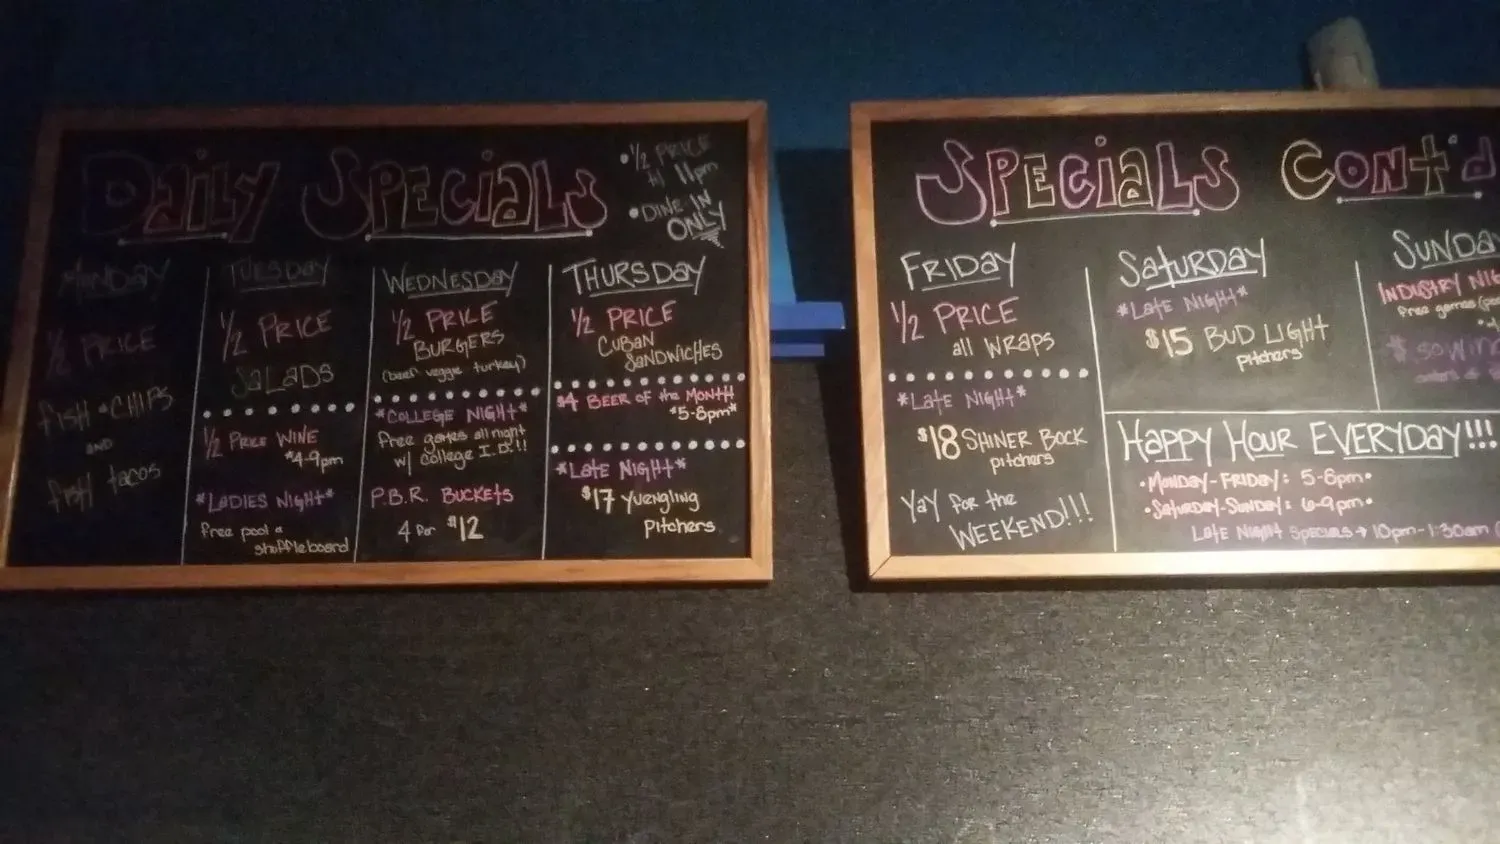 Daily Specials
• 1/2 PRICE
til 11pm
• DINE IN
ONLY
MONDAY
1/2 PRICE
fish & CHIPS
AND
fish tacos
TUESDAY
1/2 PRICE
SALADS
1/2 PRICE WINE
*4-9pm
*LADIES NIGHT*
free pool &
shuffleboard
WEDNESDAY
1/2 PRICE
BURGERS
(beef veggie turkey)
*COLLEGE NIGHT*
free games all night
w/ college I.D.!!
P.B.R. BUCKETS
4 for $12
THURSDAY
1/2 PRICE
CUBAN
SANDWICHES
$4 BEER of the MONTH
*5-8pm*
*LATE NIGHT*
$17 YUENGLING
PITCHERS
SPECiALS CONT'd
FRIDAY
1/2 PRICE
all WRAPS
*LATE NIGHT*
$18 SHINER BOCK
pitchers
YAY for the
WEEKEND!!!
SATURDAY
*LATE NIGHT*
$15 BUD LIGHT
pitchers
SUNDAY
INDUSTRY
free games
HAPPY HOUR EVERYDAY!!!
•MONDAY-FRIDAY: 5-8pm•
•SATURDAY-SUNDAY: 6-9pm•
LATE NIGHT SPECIALS → 10pm-1:30am